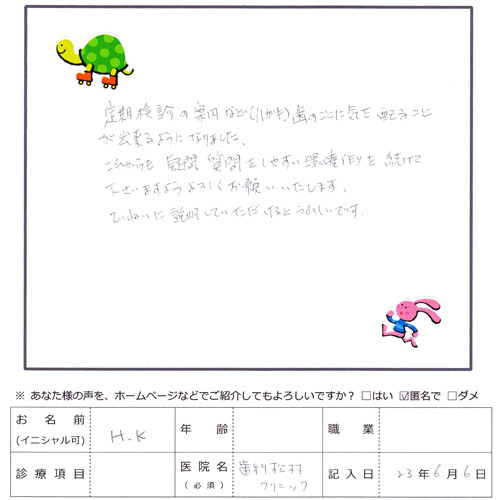 定期検診の案内など(ハガキ)歯のことに気を配ること
が出来るようになりました。
これからも疑問質問をしやすい環境作りを続けて
下さいますようよろしくお願いいたします。
ていねいに説明していただけるとうれしいです。
※ あなた様の声を、ホームページなどでご紹介してもよろしいですか？ □はい ☑匿名で □ダメ
お名前 (イニシャル可) H.K 年齢 職業
診療項目 医院名 (必須) 歯科松村クリニック 記入日 23年6月6日